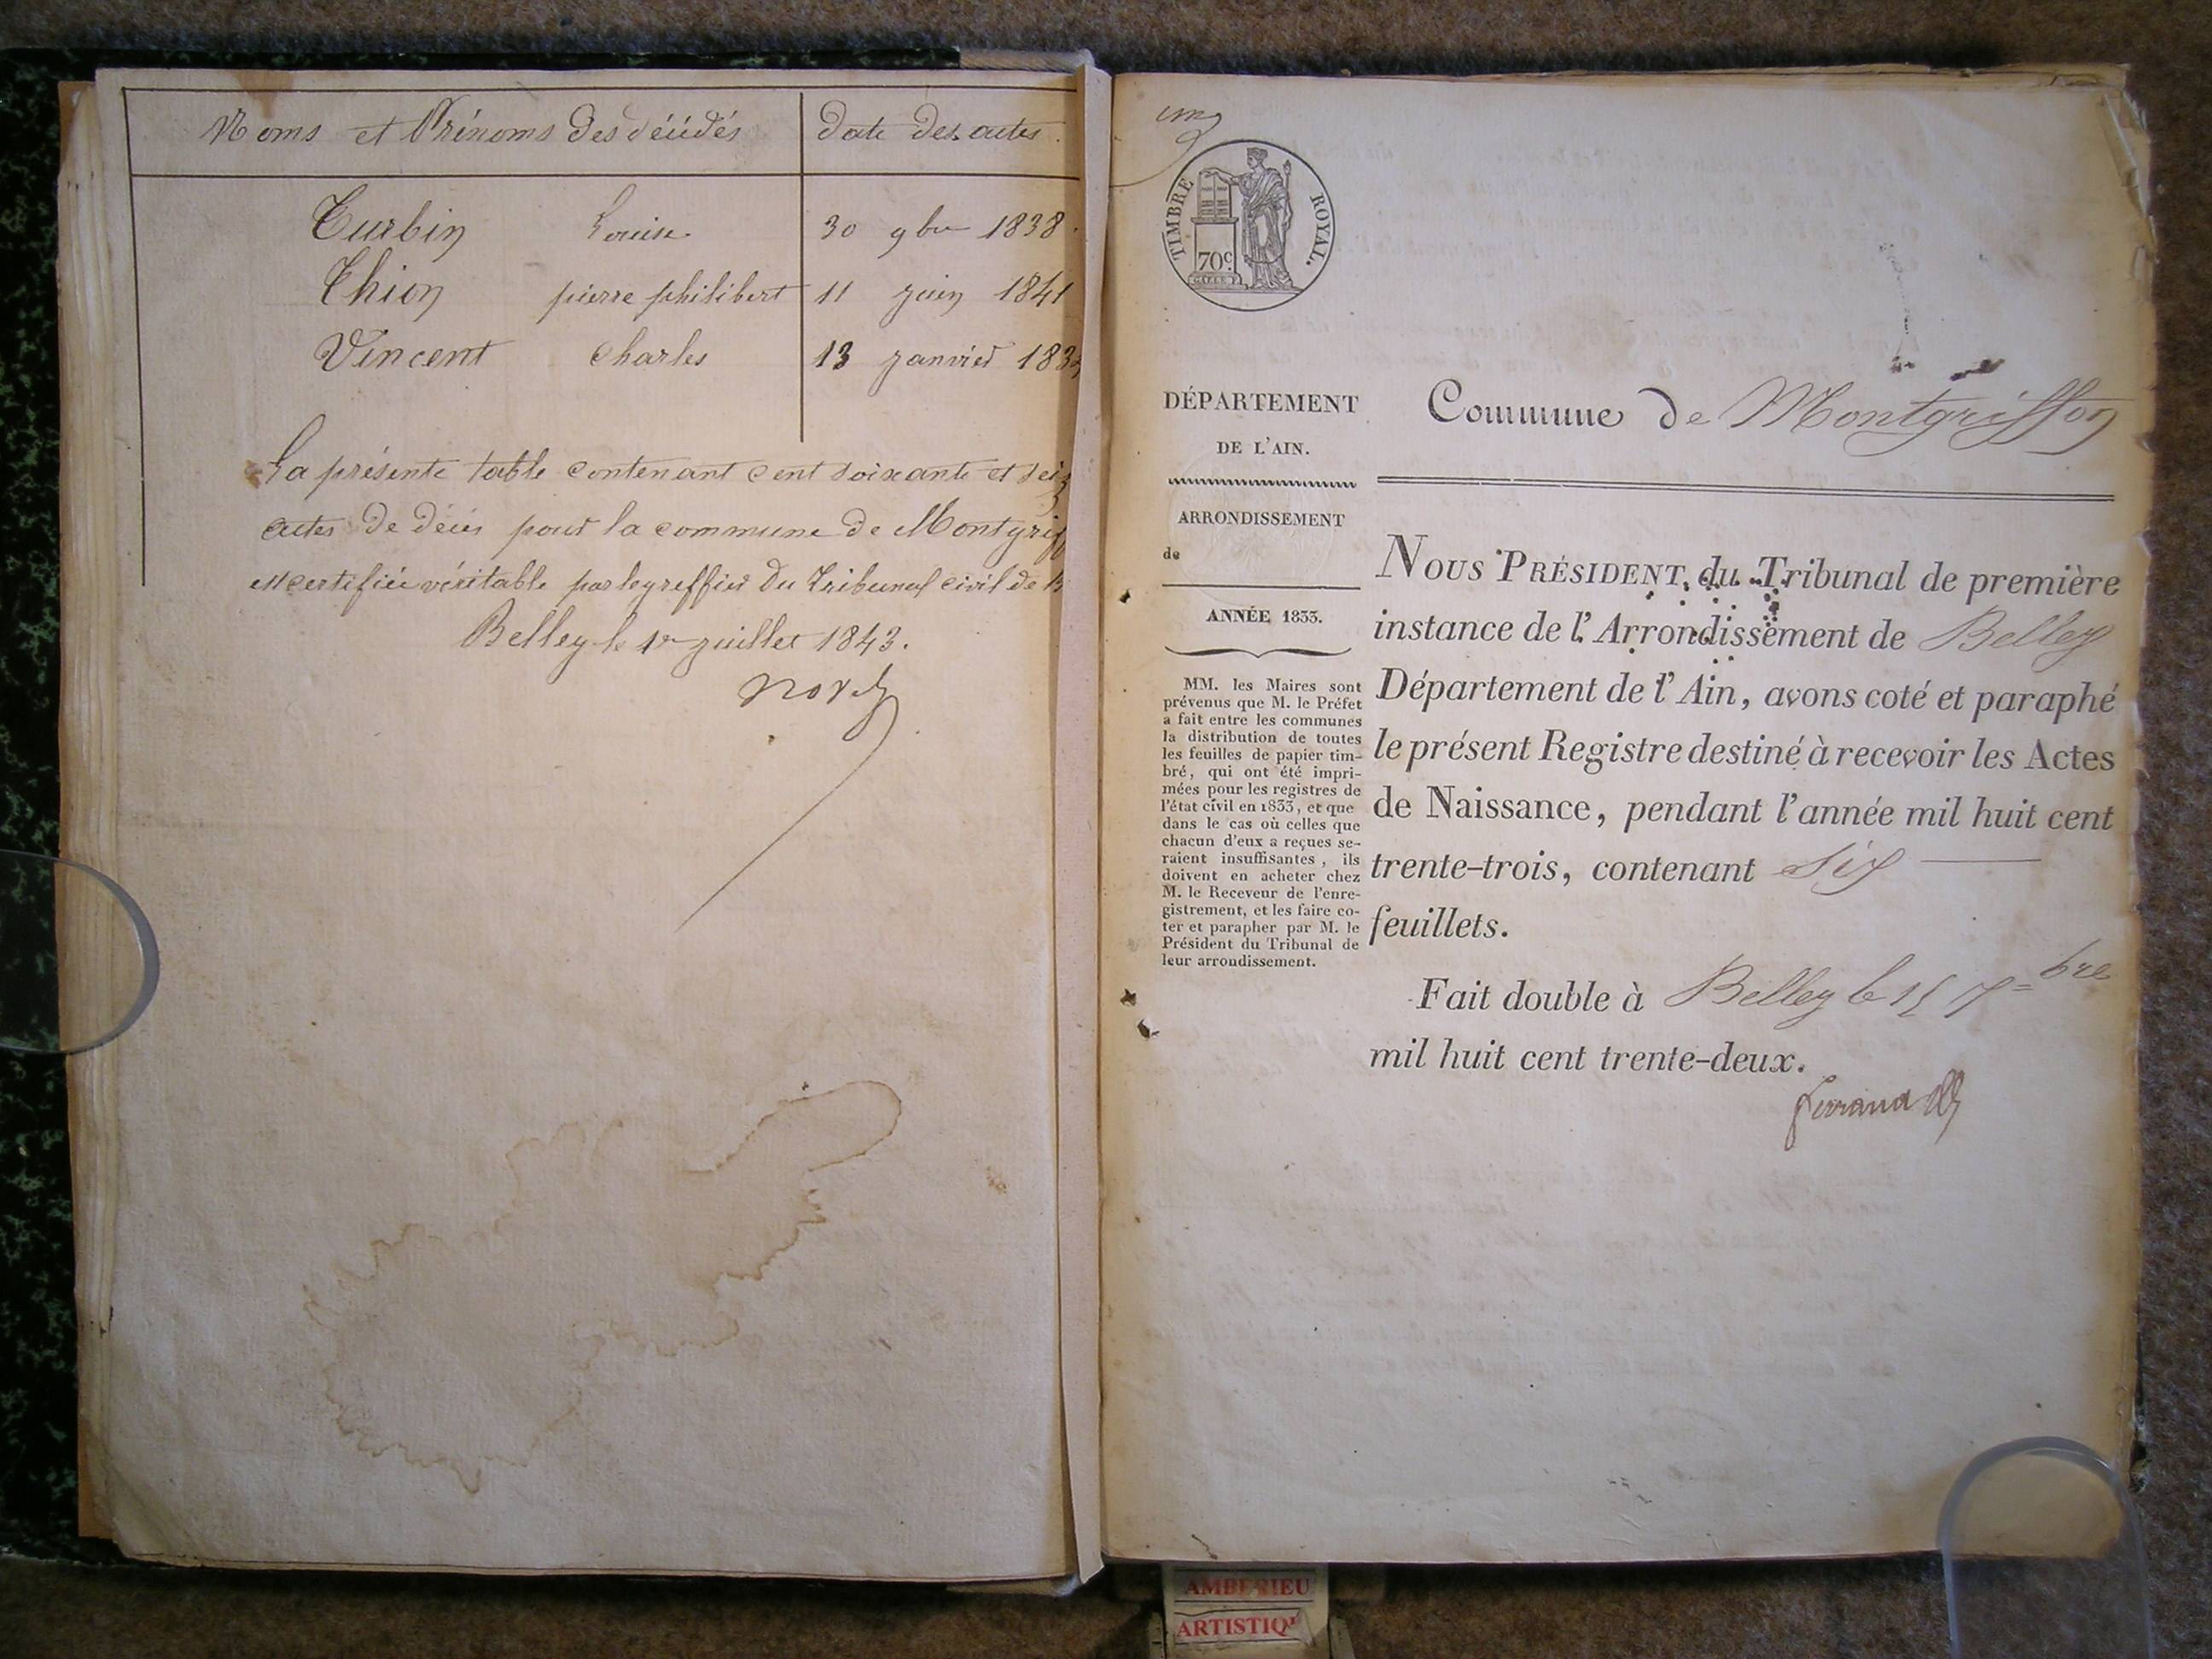 Noms et Prénoms des décédés
date des actes.
Turbin Louise 30 9bre 1838.
Thion pierre philibert 11 juin 1841
Vincent Charles 13 janvier 183
La présente table contenant cent soixante et seiz
actes de décès pour la commune de Montgriff
est certifiée véritable par le greffier du Tribunal civil de
Belley le 1er juillet 1843.
un
TIMBRE ROYAL.
70c.
DÉPARTEMENT
DE L'AIN.
ARRONDISSEMENT
de
ANNÉE 1833.
MM. les Maires sont
prévenus que M. le Préfet
a fait entre les communes
la distribution de toutes
les feuilles de papier tim-
bré, qui ont été impri-
mées pour les registres de
l'état civil en 1833, et que
dans le cas où celles que
chacun d'eux a reçues se-
raient insuffisantes, ils
doivent en acheter chez
M. le Receveur de l'enre-
gistrement, et les faire co-
ter et parapher par M. le
Président du Tribunal de
leur arrondissement.
Commune de Montgriffon
NOUS PRÉSIDENT, du Tribunal de première
instance de l'Arrondissement de Belley
Département de l'Ain, avons coté et paraphé
le présent Registre destiné à recevoir les Actes
de Naissance, pendant l'année mil huit cent
trente-trois, contenant six
feuillets.
Fait double à Belley le 15 7bre
mil huit cent trente-deux.
AMBERIEU
ARTISTIQU